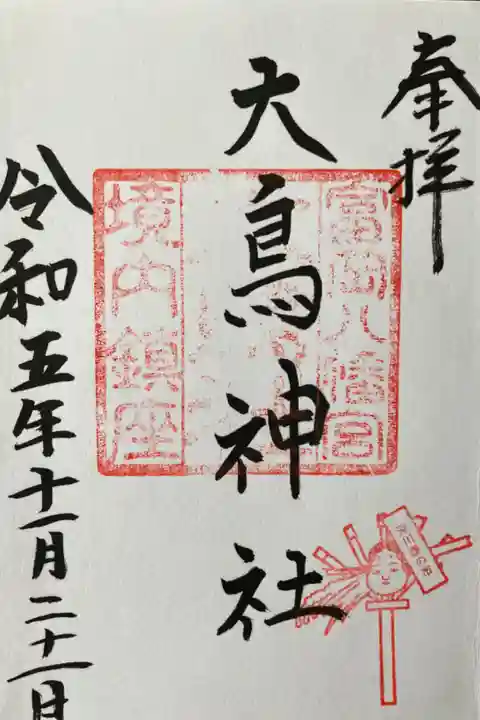 奉拝
大鳥神社
富岡八幡宮
境内鎮座
令和五年十一月二十一日